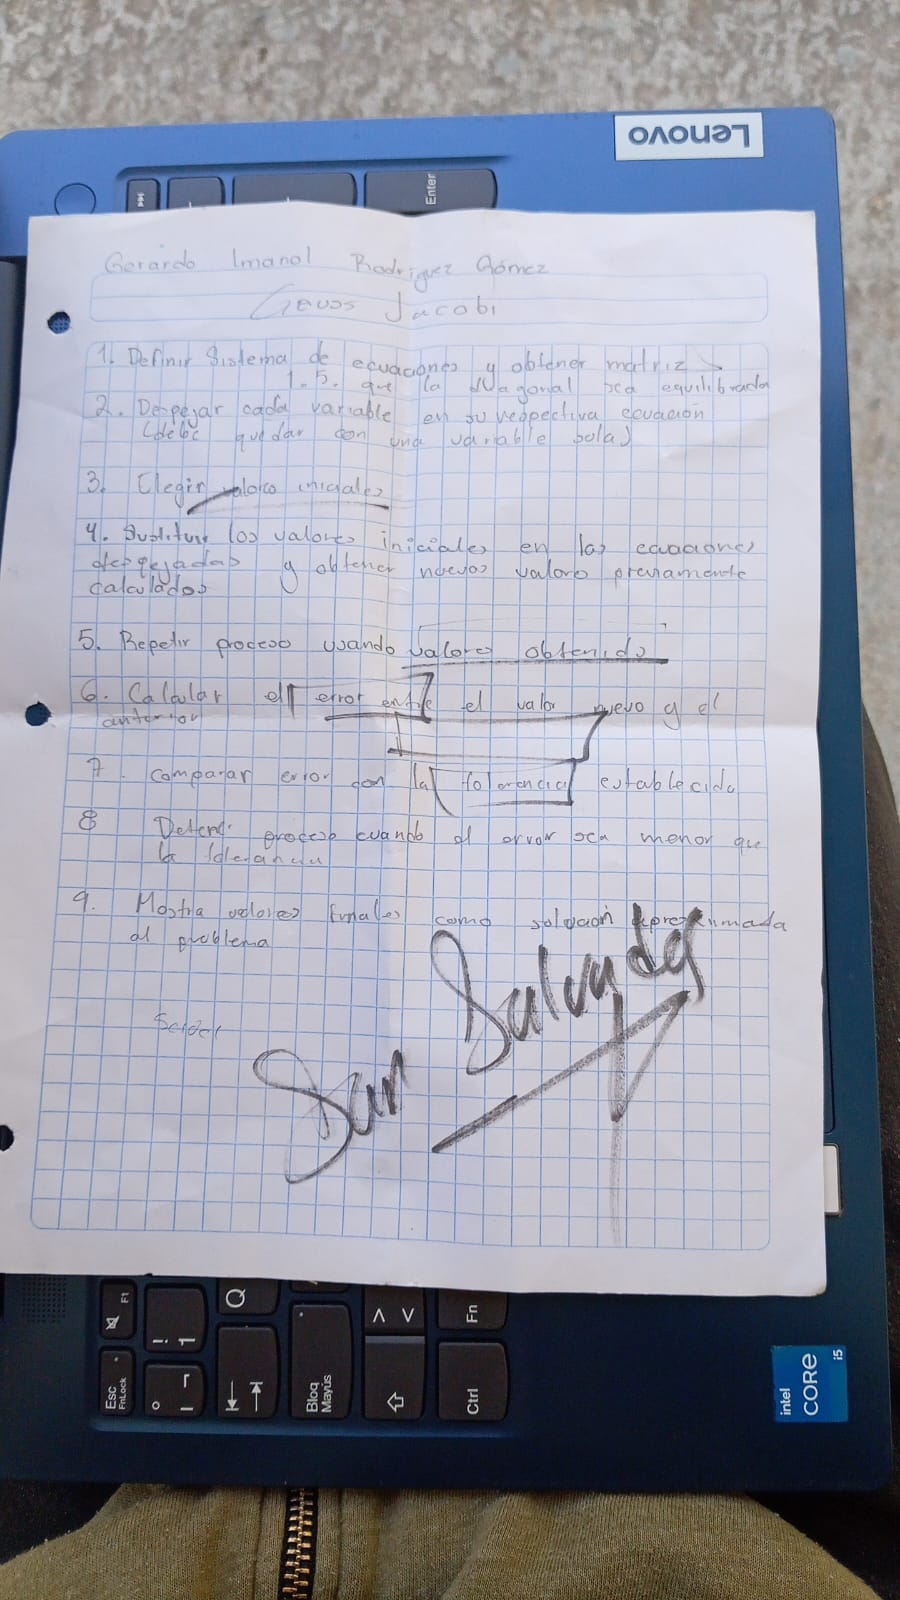 Lenovo
Enter
Gerardo Imanol Rodriguez Gómez
Gauos Jacobi
1. Definir Sistema de ecuaciones y obtener matriz
1.5. que la diagonal sea equilibrada
2. Despejar cada variable en su respectiva ecuación
(debe quedar con una variable sola)
3. Elegir valores iniciales
4. Sustituir los valores iniciales en las ecuaciones
despejadas y obtener nuevos valores previamente
calculados
5. Repetir proceso usando valores obtenido
6. Calcular el error entre el valor nuevo y el
anterior
7. comparar error con la tolerancia establecida
8 Detener proceso cuando el error sea menor que
la tolerancia
9. Mostra valores finales como solución aproximada
al problema
Seidel
San Salvador
Esc
FnLock
F1
!
1
Q
Bloq
Mayús
Fn
Ctrl
intel
CORE
i5